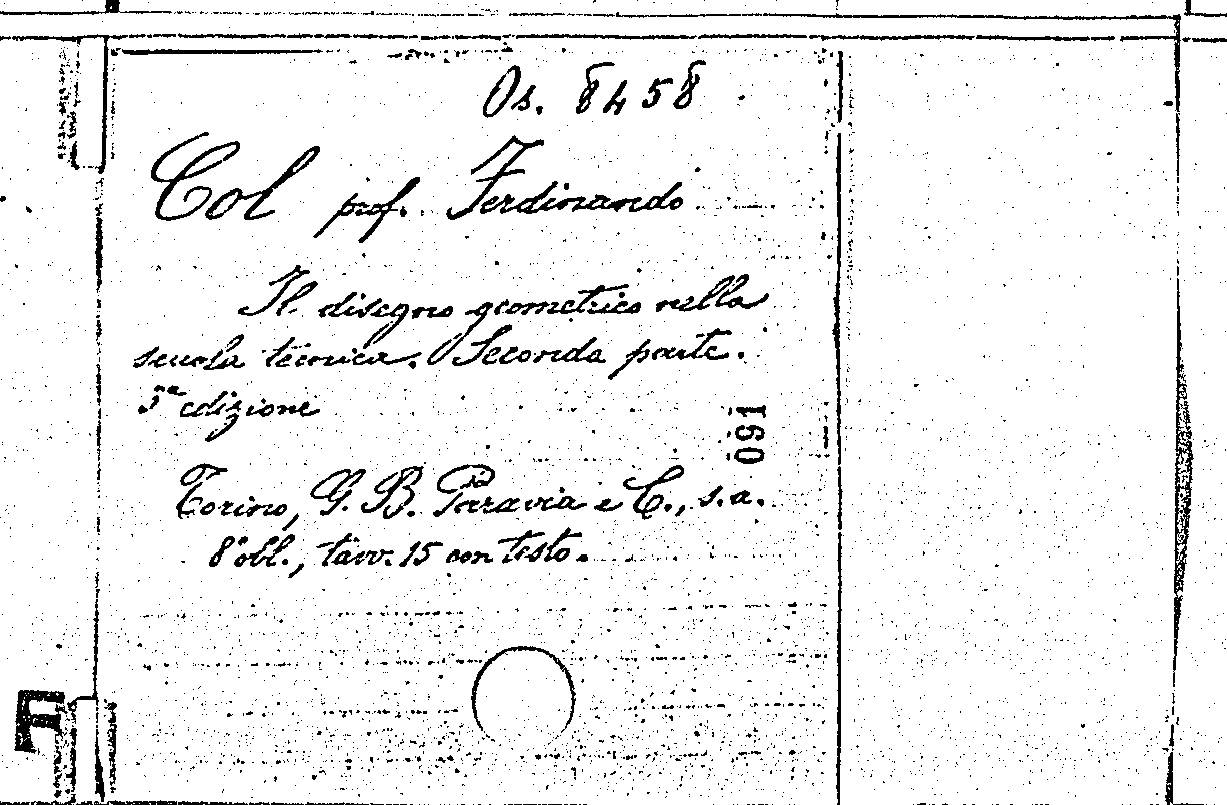 Os. 8458
Col prof. Ferdinando
Il disegno geometrico nella
scuola tecnica. Seconda parte.
3ª edizione
091
Torino, G. B. Paravia e C., s.a.
8° obl., tavv. 15 con testo.
F